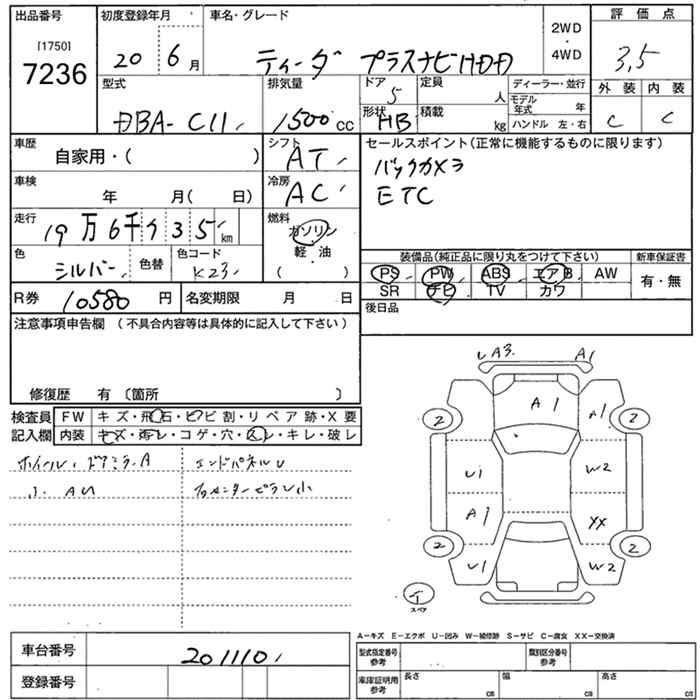 出品番号
[1750]
7236
初度登録年月
20 6 月
車名・グレード
ティーダ プラスナビHDD
2WD
・
4WD
評価点
3,5
外装 内装
C C
型式
DBA-C11
排気量
1500 cc
ドア
5
形状
HB
定員
人
積載
kg
ディーラー・並行
モデル年式 年
ハンドル 左・右
車歴
自家用・( )
シフト
AT
セールスポイント(正常に機能するものに限ります)
バックカメラ
ETC
車検
年 月( 日)
冷房
AC
走行
19万6千 35 km
燃料
ガソリン
軽・油
( )
色
シルバー
色替
色コード
K23
装備品(純正品に限り丸をつけて下さい)
PS PW ABS エアB AW
SR ナビ TV カワ
新車保証書
有・無
R券
10580 円
名変期限 月 日
後日品
注意事項申告欄 (不具合内容等は具体的に記入して下さい)
修復歴 有 〔箇所 〕
検査員記入欄
FW キズ・飛石・ヒビ割・リペア跡・X要
内装 キズ・汚レ・コゲ・穴・スレ・キレ・破レ
ホイール・ドアミラーA
エンドパネルU
A3 A1
A1 A1
2 2
U1 W2
A1 XX
2 2
U1 W2
スペア
A-キズ E-エクボ U-凹み W-補修跡 S-サビ C-腐食 XX-交換済
車台番号
201110
登録番号
型式指定番号
参考
類別区分番号
参考
車庫証明用
参考
長さ cm
幅 cm
高さ cm